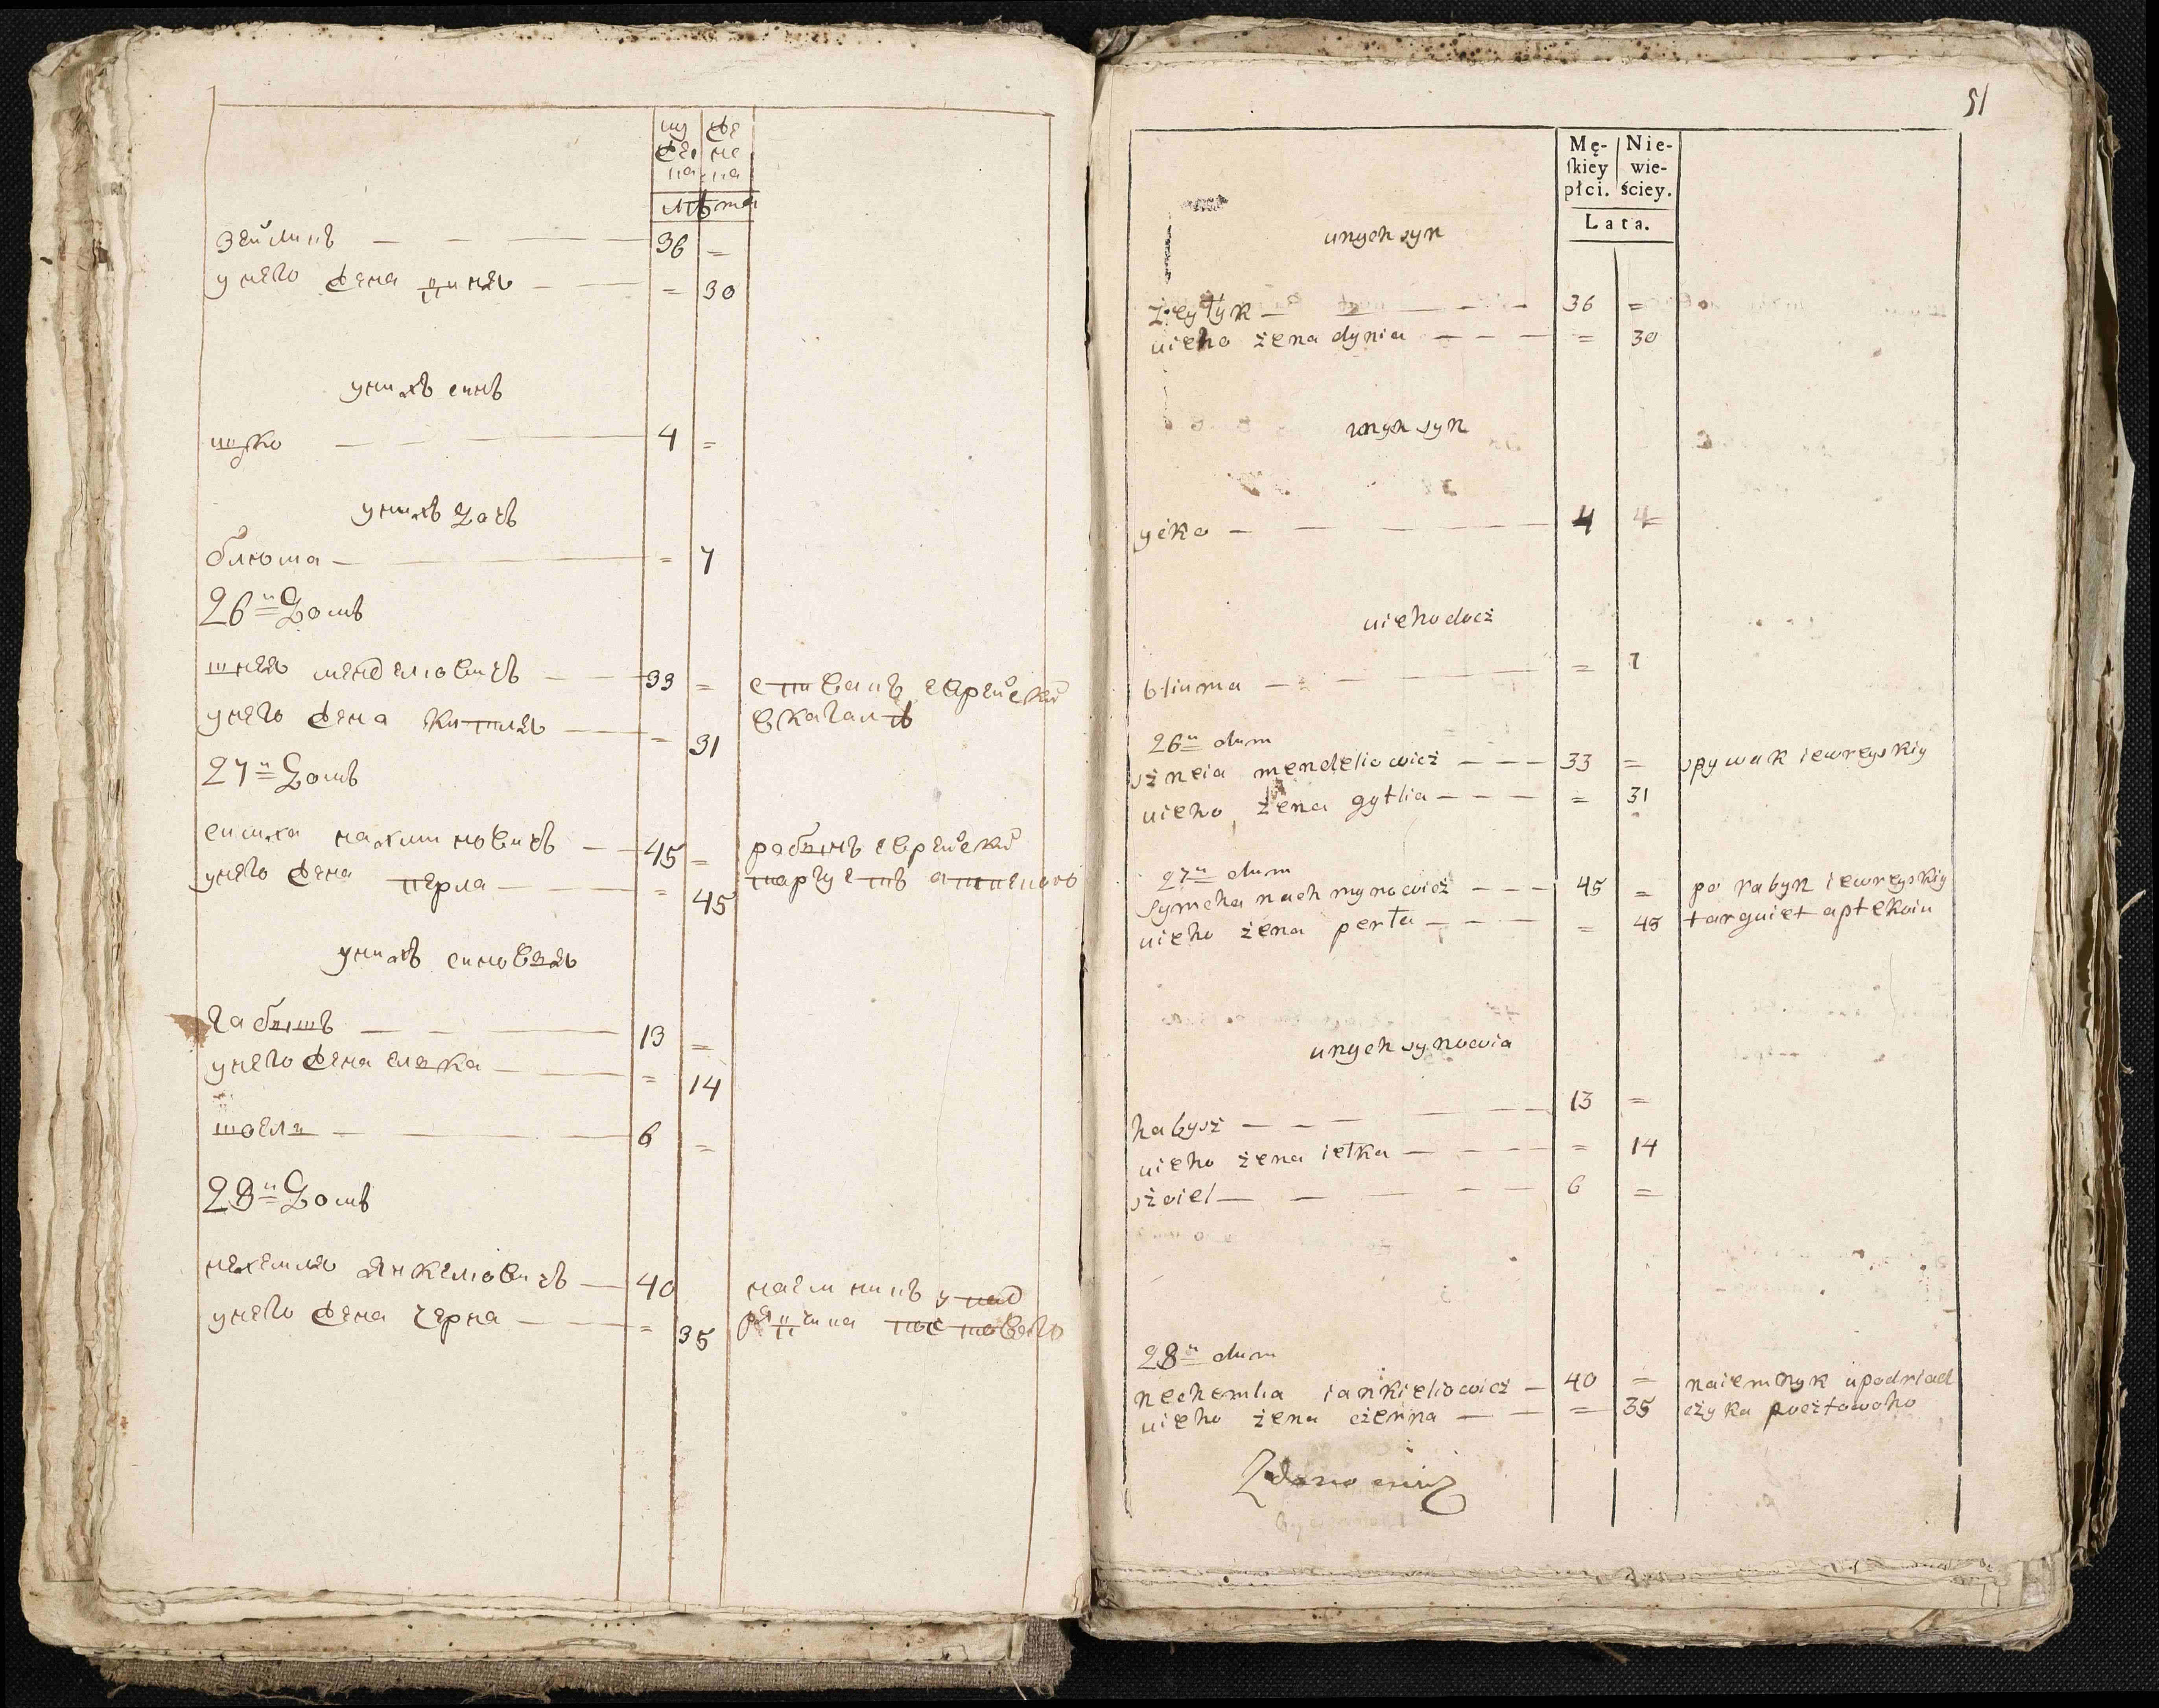 му
жес
ка
же
нс
ка
лѣта
Зейликъ — — — 36 =
у него жена динѧ — — = 30
у нихъ синъ
ицко — — — 4 =
у нихъ дочь
блюма — — — = 7
26й домъ
шнеѧ менделіовичъ — — 33 = спивакъ еврейский
у него жена китлѧ — — = 31 в кагалѣ
27й домъ
симха нахимновичъ — — 45 = рабинъ еврейский
у него жена перла — — = 45 торгуетъ аптекою
у нихъ синовѧ
габишъ — — — 13 =
у него жена елка — — = 14
шоел — — — 6 =
28й домъ
нехемлѧ Янкеліовичъ — 40 наемникъ у под
у него жена черна — — = 35 рядчика почтоваго
51
Mę-
skiey
płci.
Nie-
wie-
ściey.
Lata.
unych syn
zeylyk — — — 36 =
uieho żena dynia — — — = 30
unych syn
ycko — — — 4 =
uieho docż
bliuma — — — = 7
26й dum
sżneia mendeliowicż — — — 33 = spywak iewreyskiy
uieho żena gytlia — — — = 31
27й dum
symcha nachmynowicż — — — 45 = po rabyn iewreyskiy
uieho żena perła — — — = 45 targuiet aptekoiu
unych synowia
habysż — — — 13 =
uieho żena iełka — — — = 14
sżoiel — — — 6 =
28й dum
nechemlia iankieliowicż — 40 = naiemnyk upodriad
uieho żena cżerna — — = 35 cżyka pocżtowoho